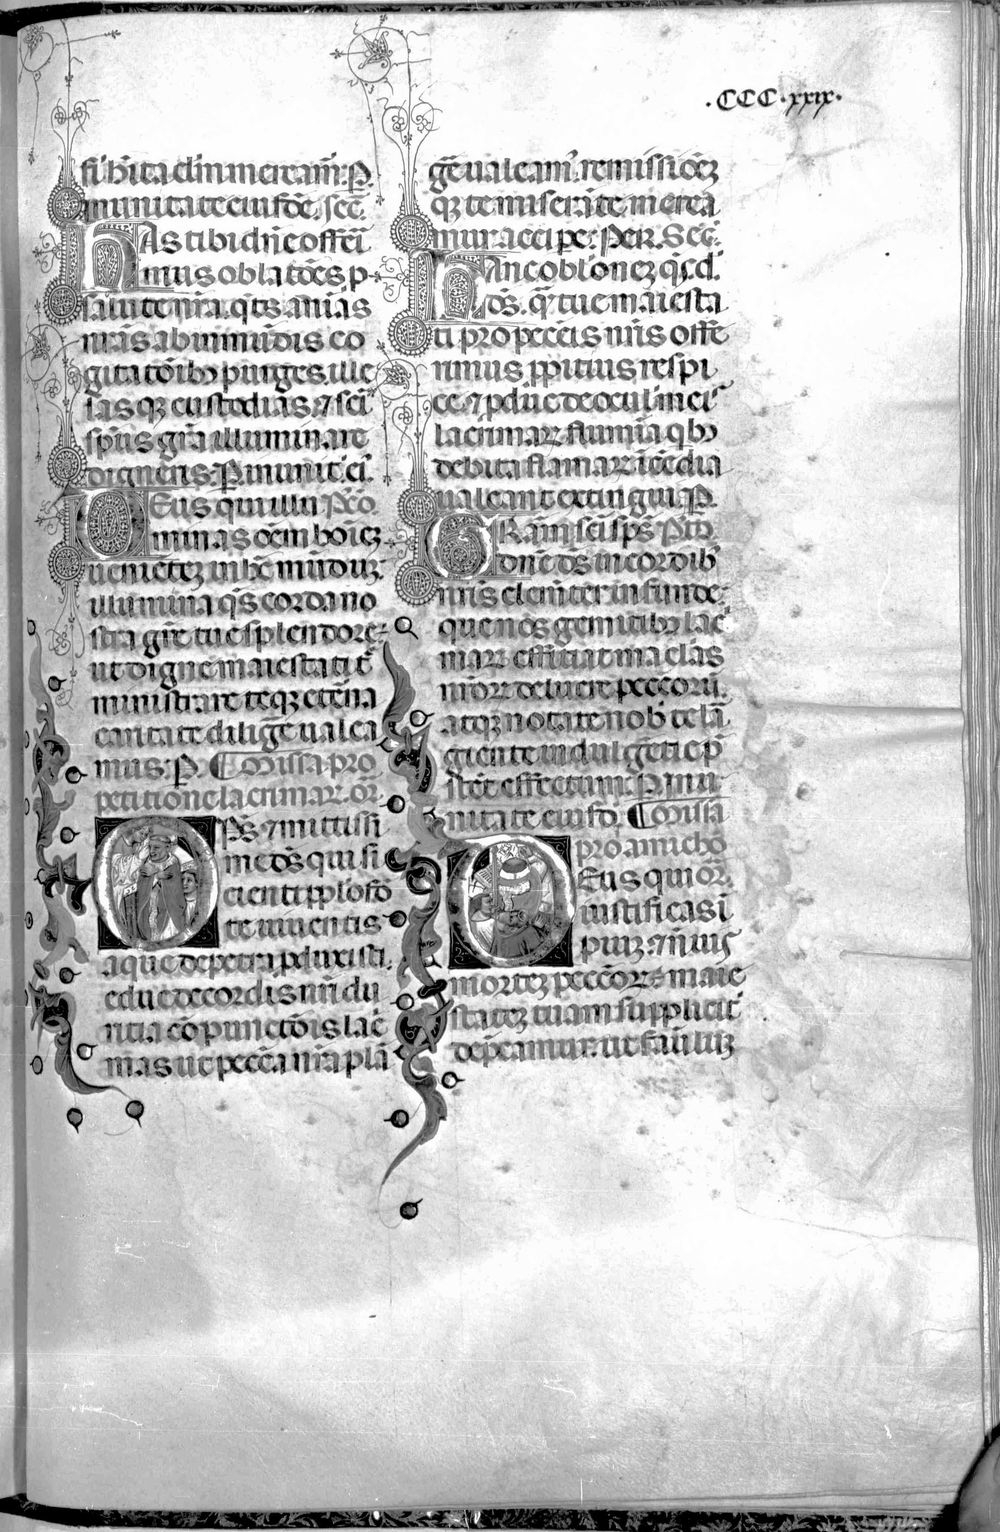 .CCC.xxix.
si bn̄ta clin mereant̄: P
munitate eiusdē. sec̄.
HAs tibi dn̄e offeri
mus oblatōes p
salute nr̄a. q̄s. anias
nr̄as ab inmūdis co
gitatōibꝫ purges. ille
sas qꝫ custodias. ⁊ sc̄i
sp̄us gr̄a illuminare
digneris. P munit̄. ei.
DEus qui illu P̄co
minas oēm hoīeꝫ
uenieteꝫ in hc̄ mūduꝫ.
illumina q̄s corda no
stra grē tue splendore:
ut digne maiestati t̄
ministrare te qꝫ etēna
caritate diligē ualea
mus. P. Missa pro
petitione lacrimaꝝ. or̄.
OPs̄ ⁊ mitissi
me dō̄s qui si
cienti pplo fōt
te uiuentis
aque de petra pduxisti.
educ de cordis nr̄i du
ritia cōpunctōis lac̄
mas ut peccā nr̄a plā
gē ualeam̄. remissiōēꝫ
qꝫ te miserāte merea
mur accipe. Per. Sec̄.
HAnc obl̄oneꝫ q̄s. d.
dō̄s. q̄ tue maiesta
ti pro peccīs nr̄is offe
rimus ppitius respi
ce. ⁊ pduc de ocul̄ meis
lacrimaꝝ flumīa q̄bꝫ
debita flamaꝝ icēdia
ualeant extingui. P.
GRām sc̄i sps̄. Pco
dn̄e dō̄s in cordibꝫ
nr̄is clemēter infunde:
que nos gemitibꝫ lac̄
maꝝ efficiat maclas
nr̄oꝝ deluere peccorū.
atqꝫ notate nob̄ te lā
giente indulgētie p̄
stet effectum. P mu
nitate eiusd. Missa
pro amicho
DEus qui or̄.
iustificas ī
piuꝫ. ⁊ n̄ uis
morteꝫ peccōꝝ: maie
stateꝫ tuam supplicit̄
dep̄camur. ut faml̄uꝫ